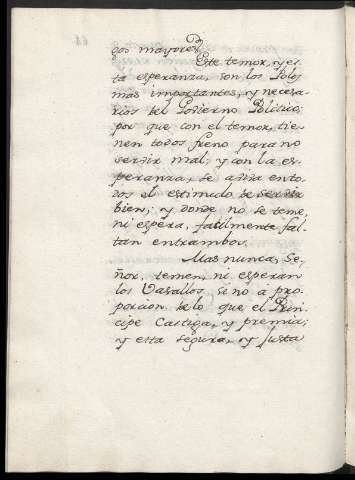 gos mayores
Este temor, y es-
ta esperanza, son los Polos
mas importantes, y necesa-
rios del Govierno Politico;
por que con el temor, tie-
nen todos freno para no
servir mal; y con la es-
peranza, se aviva en to-
dos el estimulo de servir
bien; y donde no se teme,
ni espera, facilmente fal-
tan entrambos.
Mas nunca, Se-
ñor, temen, ni esperan
los Vasallos, sino a pro-
porcion de lo que el Prin-
cipe Castiga, y premia;
y esta segura, y Justa